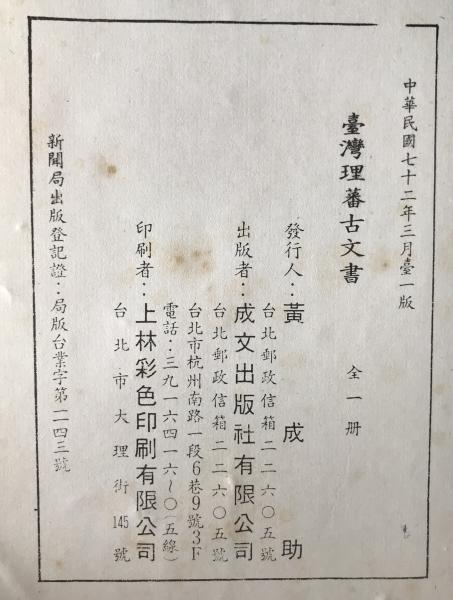 中華民國七十二年三月臺一版
臺灣理蕃古文書　全一冊
發行人：黃成助
台北郵政信箱二二六〇五號
出版者：成文出版社有限公司
台北郵政信箱二二六〇五號
台北市杭州南路一段6巷9號3F
電話：三九一六四一六～〇（五線）
印刷者：上林彩色印刷有限公司
台北市大理街145號
新聞局出版登記證：局版台業字第一一四三號